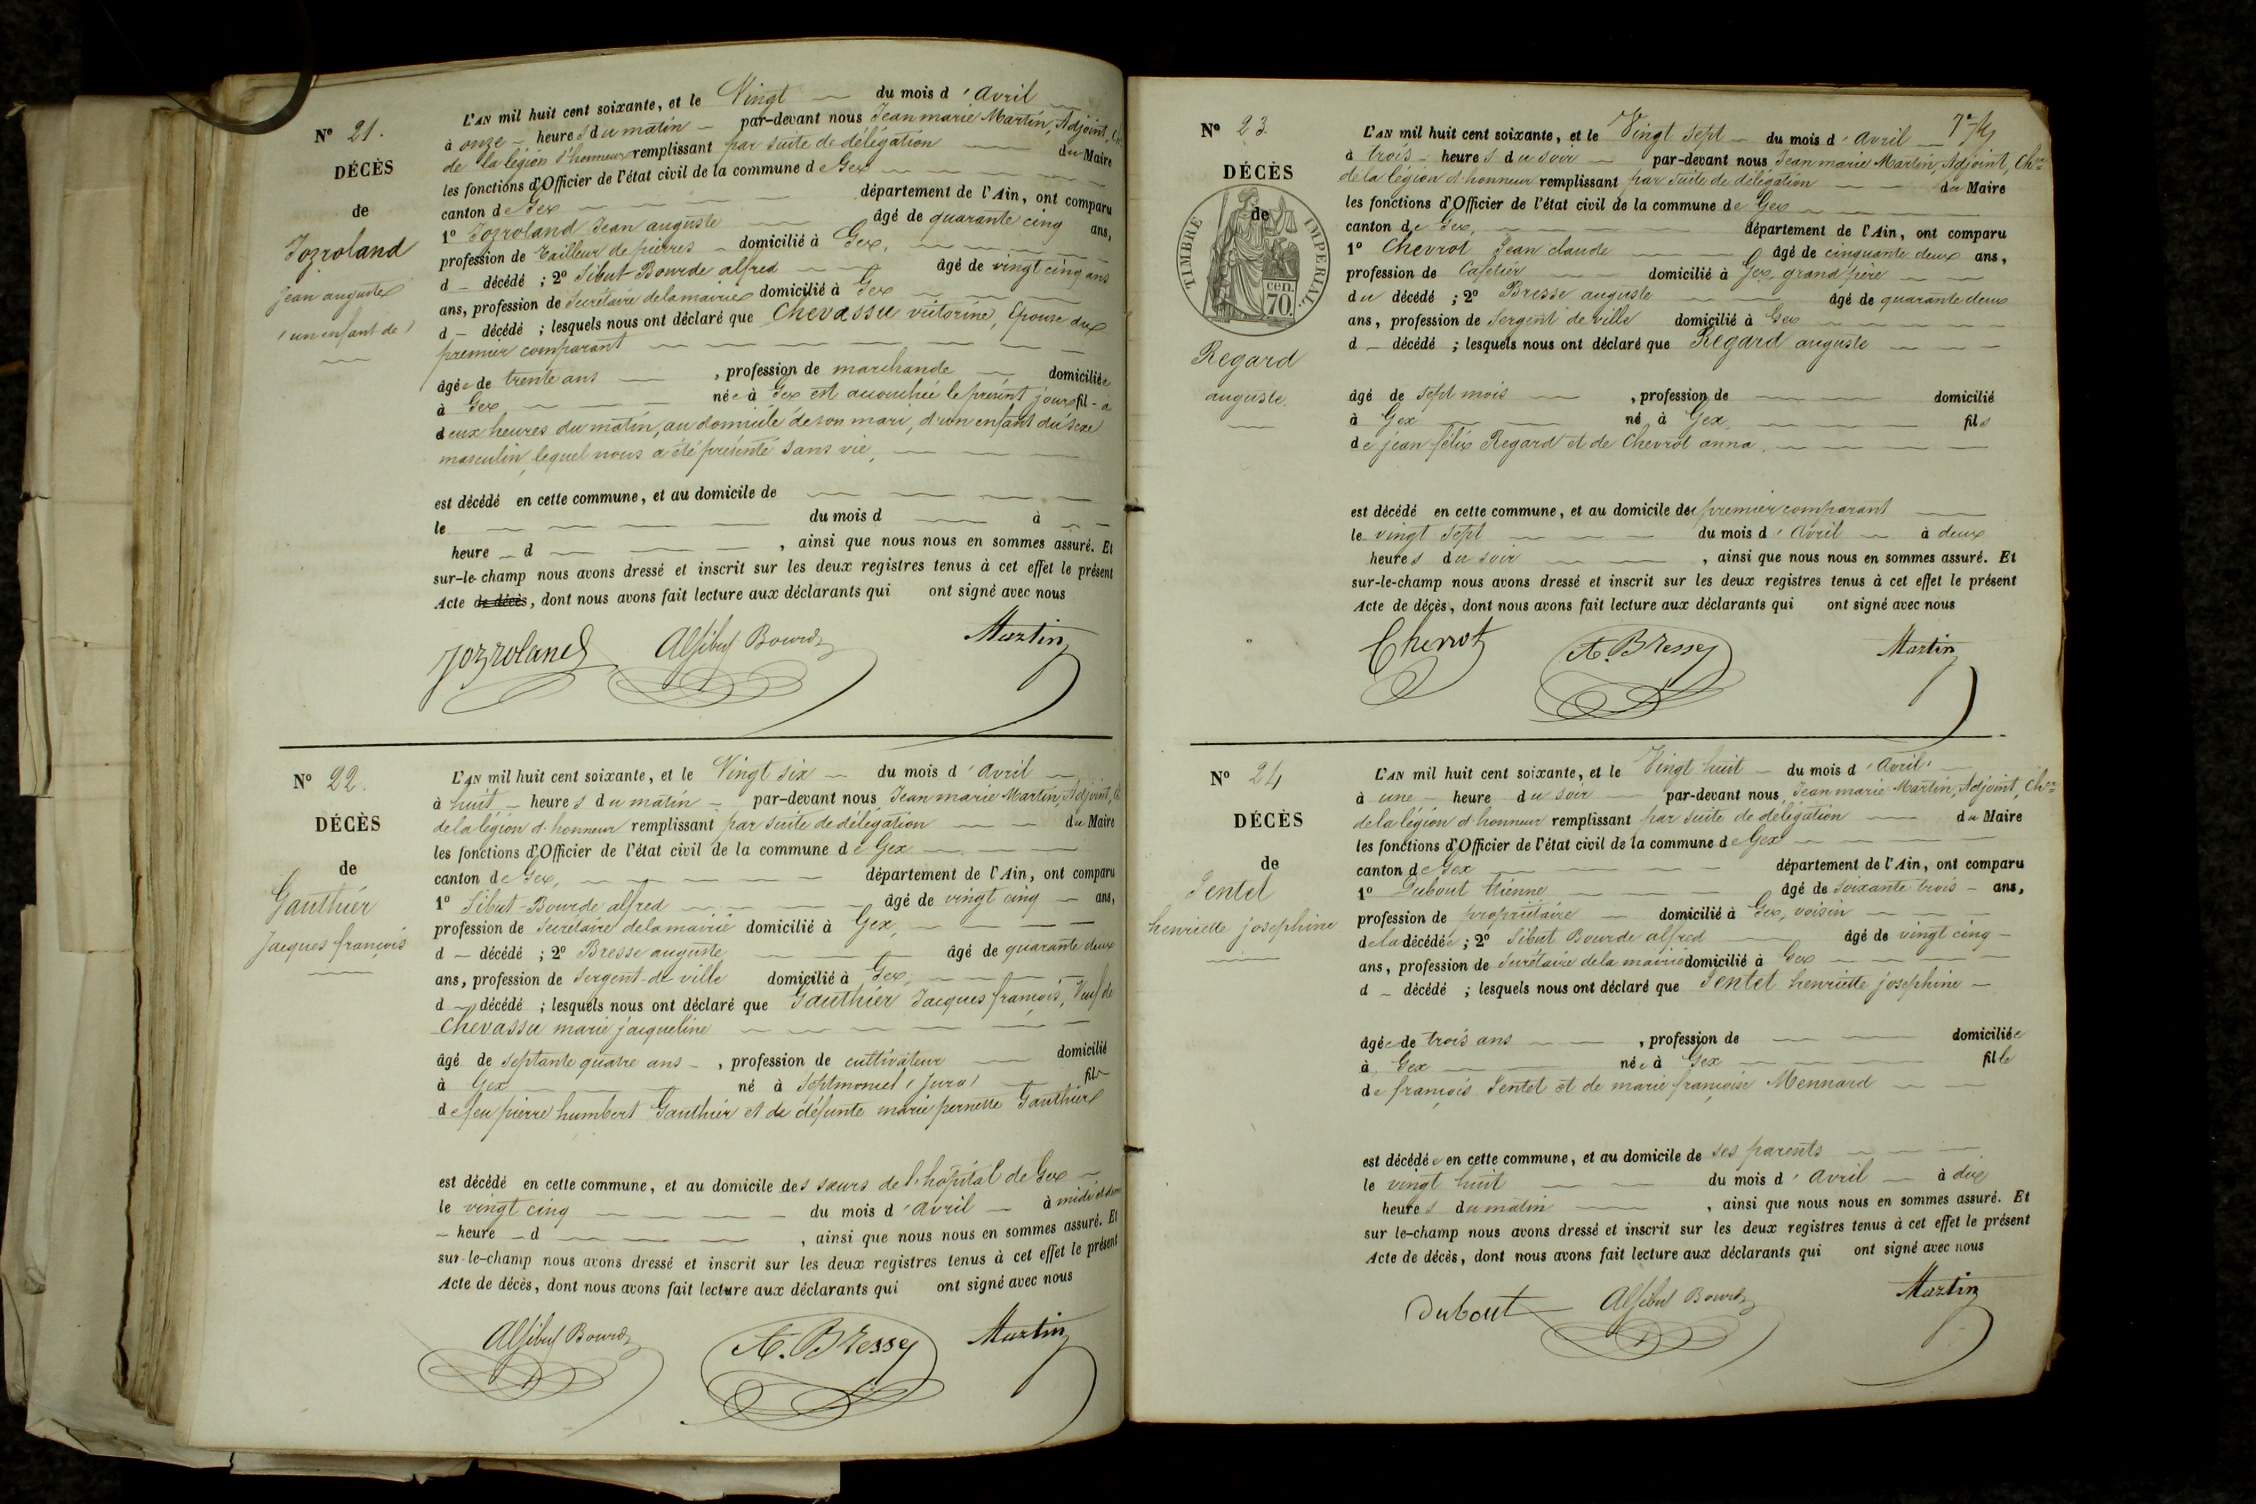 N° 21.
DÉCÈS
de
Jozroland
jean auguste
(un enfant de)
L'AN mil huit cent soixante, et le Vingt du mois d'avril
à onze heures du matin par-devant nous Jean marie Martin, Adjoint, Ch
de la légion d'honneur remplissant par suite de délégation du Maire
les fonctions d'Officier de l'état civil de la commune de Gex
canton de Gex département de l'Ain, ont comparu
1° Jozroland Jean auguste âgé de quarante cinq ans,
profession de tailleur de pierres domicilié à Gex,
d décédé ; 2° Sibut Bourde alfred âgé de vingt cinq ans
ans, profession de Secrétaire de la mairie domicilié à Gex
d décédé ; lesquels nous ont déclaré que Chevassu victorine, Epouse du
premier comparant
âgée de trente ans , profession de marchande domiciliée
à Gex née à Gex est accouchée le présent jour fil a
deux heures du matin, au domicile de son mari, d'un enfant du sexe
masculin, lequel nous a été présenté sans vie,
est décédé en cette commune, et au domicile de
le du mois d à
heure d , ainsi que nous nous en sommes assuré. Et
sur-le-champ nous avons dressé et inscrit sur les deux registres tenus à cet effet le présent
Acte de décès, dont nous avons fait lecture aux déclarants qui ont signé avec nous
Jozroland Alf Sibut Bourde Martin
N° 22.
DÉCÈS
de
Gauthier
Jacques françois
L'AN mil huit cent soixante, et le Vingt six du mois d'avril
à huit heures du matin par-devant nous Jean marie Martin, Adjoint,
de la légion d'honneur remplissant par suite de délégation du Maire
les fonctions d'Officier de l'état civil de la commune de Gex
canton de Gex, département de l'Ain, ont comparu
1° Sibut-Bourde alfred âgé de vingt cinq ans,
profession de Secrétaire de la mairie domicilié à Gex,
d décédé ; 2° Bresse auguste âgé de quarante deux
ans, profession de Sergent de ville domicilié à Gex,
d décédé ; lesquels nous ont déclaré que Gauthier Jacques françois, Veuf de
Chevassu marie jacqueline
âgé de septante quatre ans , profession de cultivateur domicilié
à Gex né à Septmoncel (Jura) fils
de feu pierre humbert Gauthier et de défunte marie pernette Gauthier
est décédé en cette commune, et au domicile des sœurs de l'hôpital de Gex
le vingt cinq du mois d'avril à midi et demi
heure d , ainsi que nous nous en sommes assuré. Et
sur-le-champ nous avons dressé et inscrit sur les deux registres tenus à cet effet le présent
Acte de décès, dont nous avons fait lecture aux déclarants qui ont signé avec nous
Alf Sibut Bourde A. Bresse Martin
N° 23.
DÉCÈS
de
TIMBRE IMPERIAL.
cen. 70.
Regard
auguste.
L'AN mil huit cent soixante, et le Vingt sept du mois d'avril
à trois heures du soir par-devant nous Jean marie Martin, Adjoint, Cher
de la légion d'honneur remplissant par suite de délégation du Maire
les fonctions d'Officier de l'état civil de la commune de Gex
canton de Gex, département de l'Ain, ont comparu
1° Chevrot Jean claude âgé de cinquante deux ans,
profession de Cafetier domicilié à Gex, grand père
du décédé ; 2° Bresse auguste âgé de quarante deux
ans, profession de Sergent de ville domicilié à Gex
d décédé ; lesquels nous ont déclaré que Regard auguste
âgé de sept mois , profession de domicilié
à Gex né à Gex, fils
de jean félix Regard et de Chevrot anna,
est décédé en cette commune, et au domicile du premier comparant
le vingt sept du mois d'avril à deux
heures du soir , ainsi que nous nous en sommes assuré. Et
sur-le-champ nous avons dressé et inscrit sur les deux registres tenus à cet effet le présent
Acte de décès, dont nous avons fait lecture aux déclarants qui ont signé avec nous
Chevrot A. Bresse Martin
N° 24
DÉCÈS
de
Jentet
henriette josephine
L'AN mil huit cent soixante, et le Vingt huit du mois d'avril
à une heure du soir par-devant nous Jean marie Martin, Adjoint, Cher
de la légion d'honneur remplissant par suite de délégation du Maire
les fonctions d'Officier de l'état civil de la commune de Gex
canton de Gex département de l'Ain, ont comparu
1° Dubout Etienne âgé de soixante trois ans,
profession de propriétaire domicilié à Gex, voisin
de la décédée ; 2° Sibut Bourde alfred âgé de vingt cinq
ans, profession de Secrétaire de la mairie domicilié à Gex
d décédé ; lesquels nous ont déclaré que Jentet henriette josephine
âgée de trois ans , profession de domiciliée
à Gex née à Gex fille
de françois Jentet et de marie françoise Mennard
est décédée en cette commune, et au domicile de ses parents
le vingt huit du mois d'avril à dix
heures du matin , ainsi que nous nous en sommes assuré. Et
sur le-champ nous avons dressé et inscrit sur les deux registres tenus à cet effet le présent
Acte de décès, dont nous avons fait lecture aux déclarants qui ont signé avec nous
Dubout Alf Sibut Bourde Martin